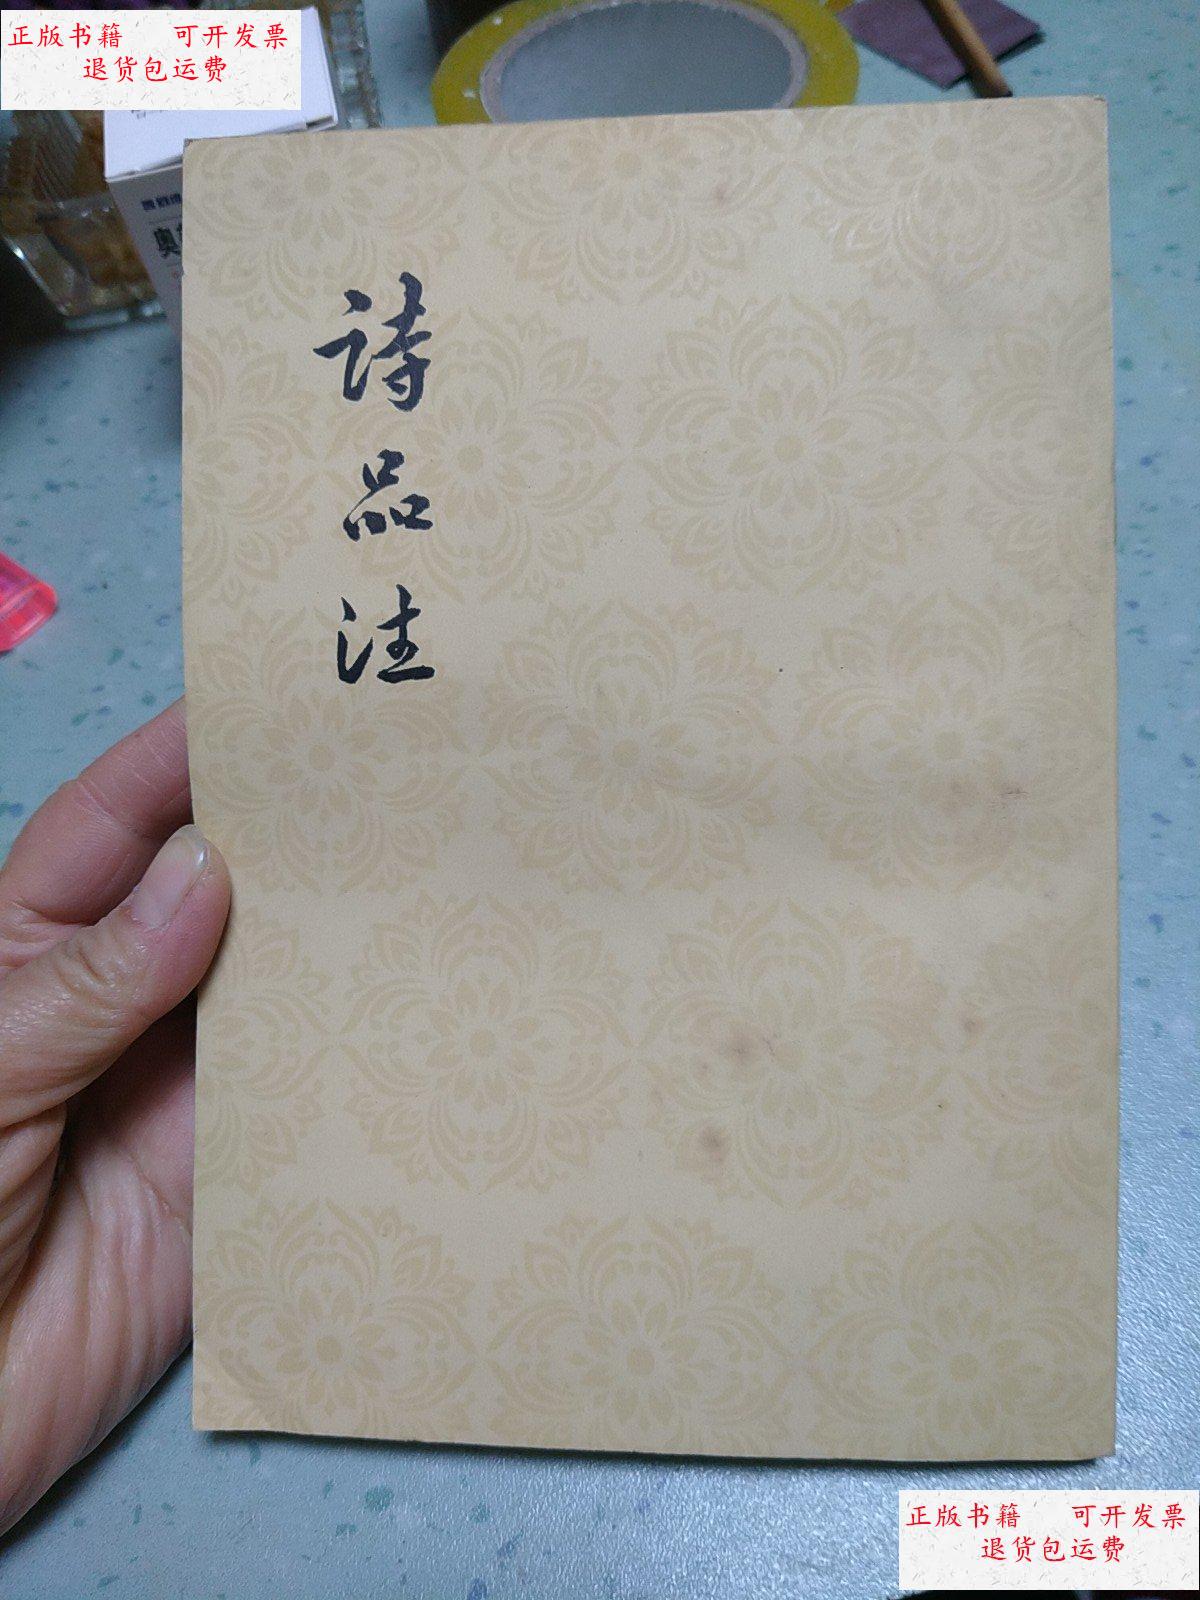 正版书籍 可开发票
退货包运费
詩品注
正版书籍 可开发票
退货包运费